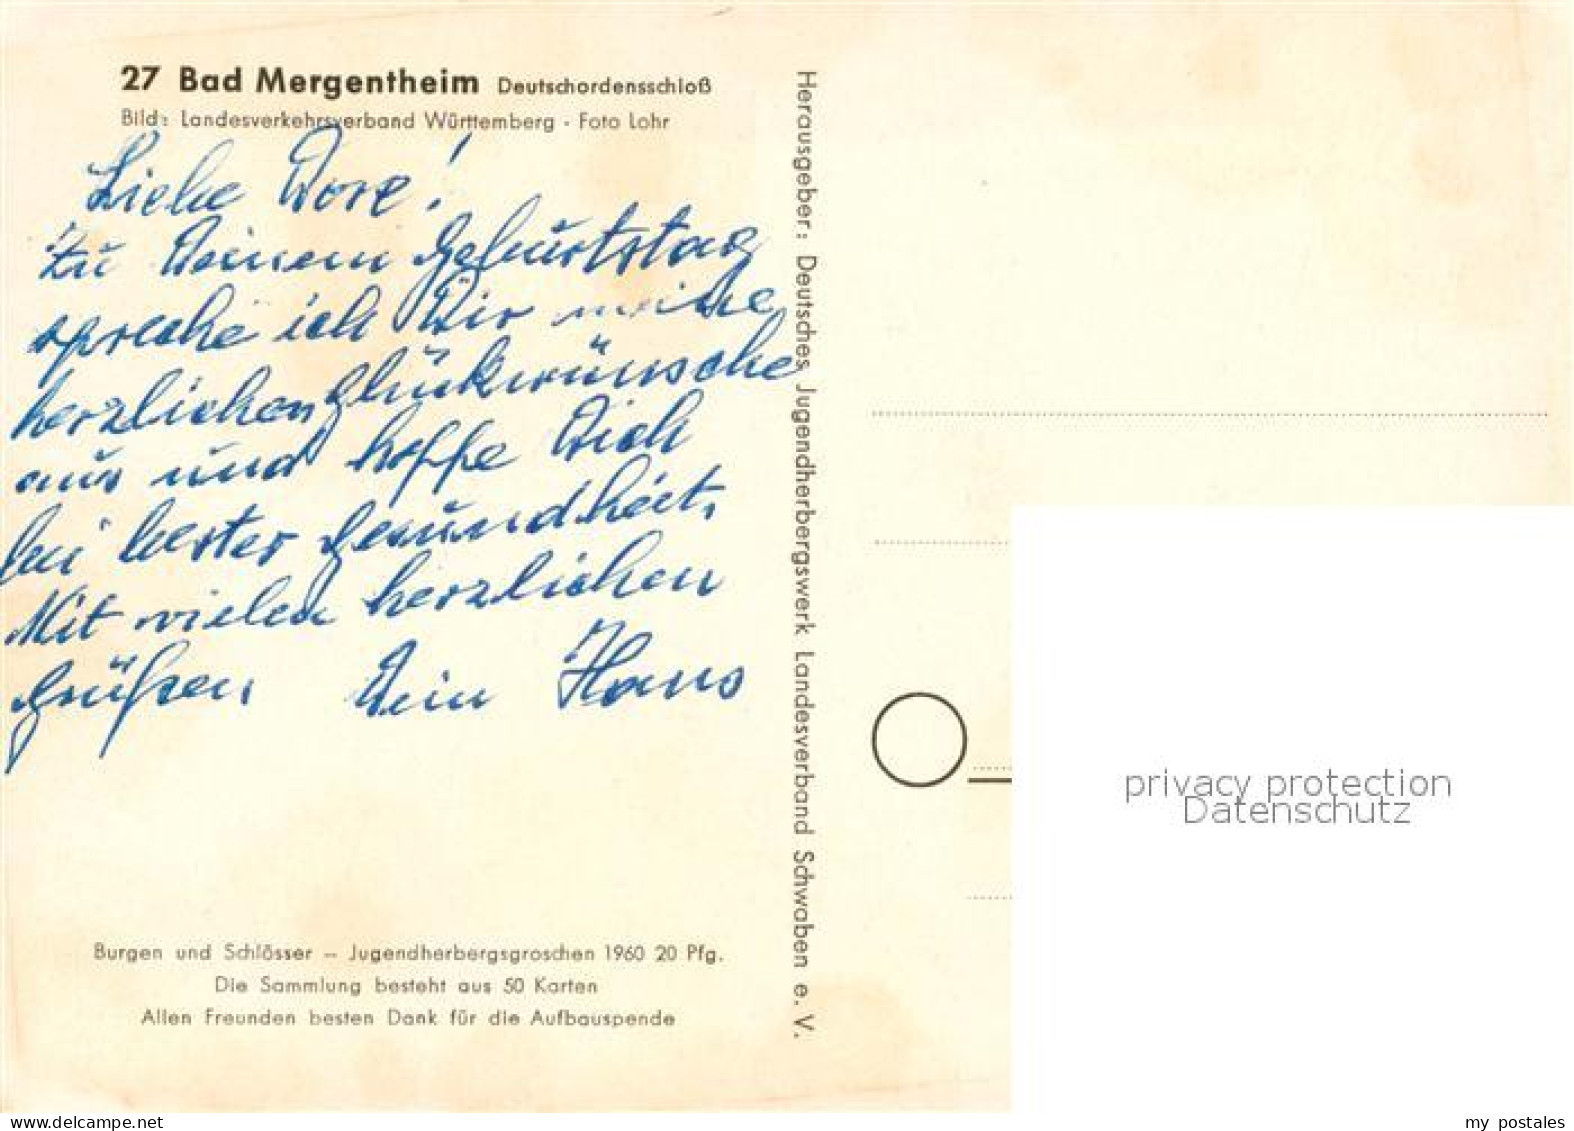 27 Bad Mergentheim Deutschordensschloß
Bild: Landesverkehrsverband Württemberg · Foto Lohr
Liebe Dore!
Zu Deinem Geburtstag
spreche ich Dir meine
herzlichen Glükwünsche
aus und hoffe Dich
bei bester Gesundheit.
Mit vielen herzlichen
Grüßen Dein Hans
Burgen und Schlösser – Jugendherbergsgroschen 1960 20 Pfg.
Die Sammlung besteht aus 50 Karten
Allen Freunden besten Dank für die Aufbauspende
Herausgeber: Deutsches Jugendherbergswerk Landesverband Schwaben e. V.
privacy protection
Datenschutz
www.delcampe.net
my postales